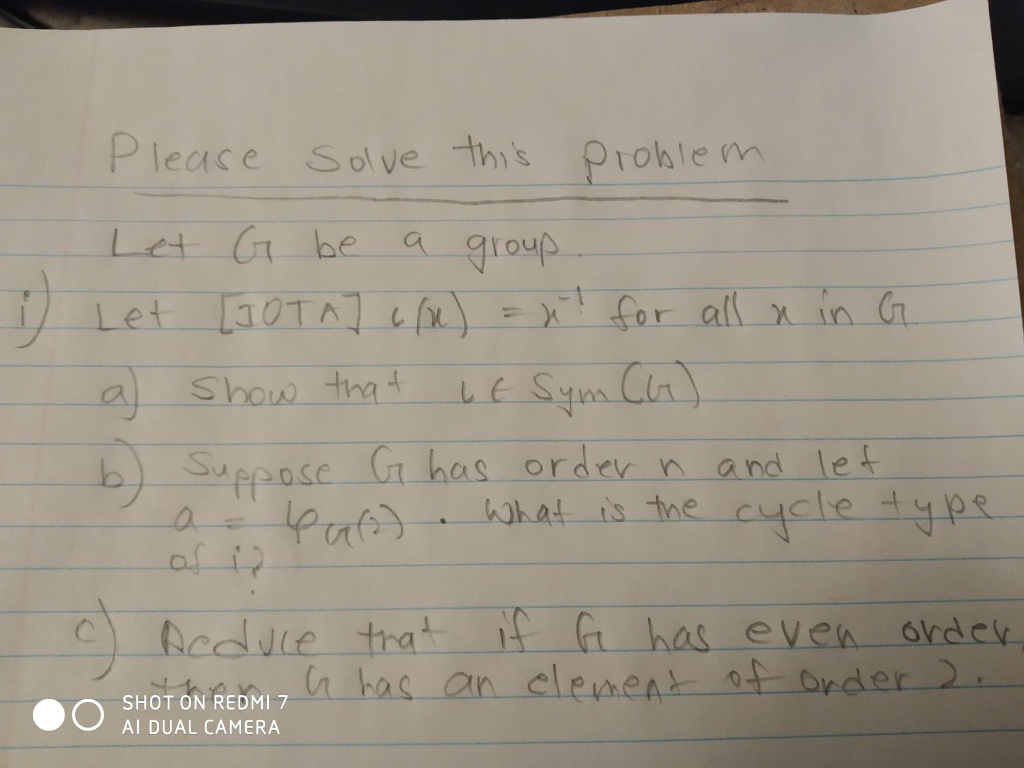 Please solve this problem
Let G be a group.
i) Let [IOTA] ι(x) = x⁻¹ for all x in G
a) Show that ι ∈ Sym(G)
b) Suppose G has order n and let
a = φG(2). What is the cycle type
of i?
c) Deduce that if G has even order,
then G has an element of order 2.
SHOT ON REDMI 7
AI DUAL CAMERA